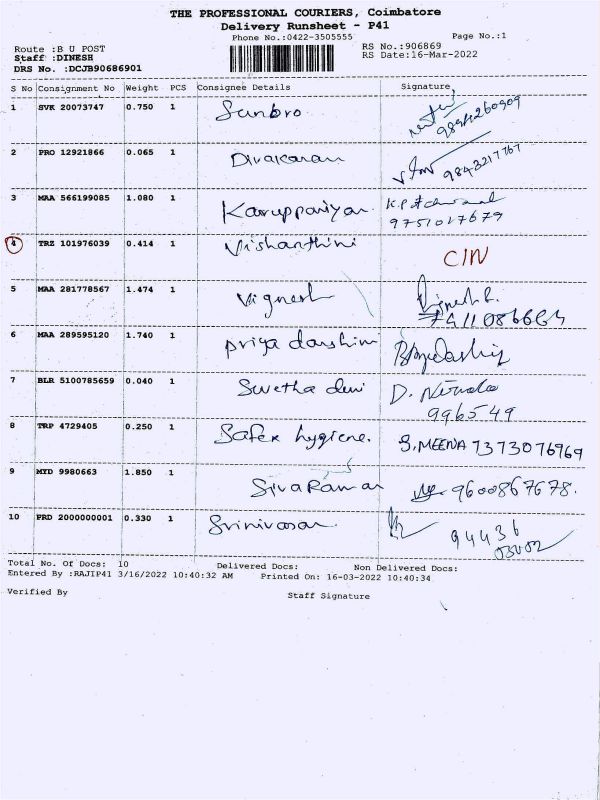 THE PROFESSIONAL COURIERS, Coimbatore
Delivery Runsheet - P41
Phone No.:0422-3505555 Page No.:1
Route :B U POST RS No.:906869
Staff :DINESH RS Date:16-Mar-2022
DRS No. :DCJB90686901
S No Consignment No Weight PCS Consignee Details Signature
1 SVK 20073747 0.750 1 Sunbro 9894260909
2 PRO 12921866 0.065 1 Divakaran 9843217767
3 MAA 566199085 1.080 1 Karuppaniyan 9751017679
4 TRZ 101976039 0.414 1 Vishanthini CIN
5 MAA 281778567 1.474 1 Vignesh Vignesh
6 MAA 289595120 1.740 1 Priya darshini
7 BLR 5100785659 0.040 1 Swetha devi D. Nirmala
996549
8 TRP 4729405 0.250 1 Safex hygiene. S.MEENA 7373076969
9 MYD 9980663 1.850 1 SivaRaman 9600867678.
10 PRD 2000000001 0.330 1 Srinivasan 94436
03002
Total No. Of Docs: 10 Delivered Docs: Non Delivered Docs:
Entered By :RAJIP41 3/16/2022 10:40:32 AM Printed On: 16-03-2022 10:40:34
Verified By Staff Signature